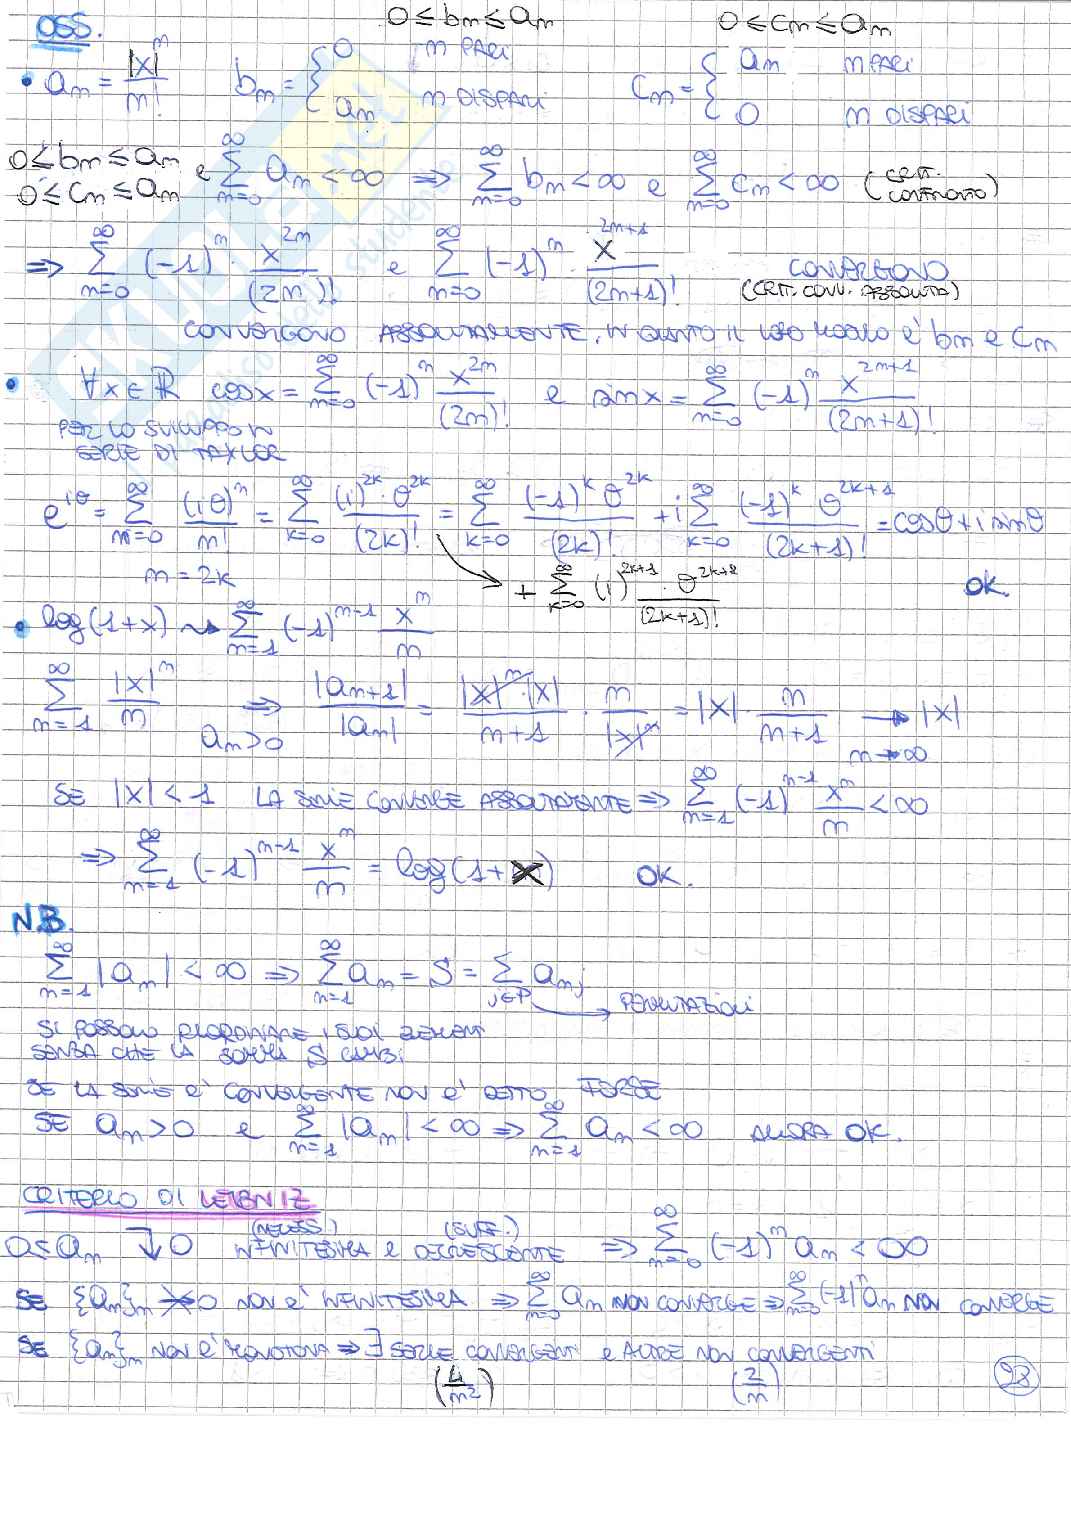 OSS.
0 ≤ bn ≤ an    0 ≤ cn ≤ an
• an = |x|^n / n!    bn = { 0 n PARI ; an n DISPARI    cn = { an n PARI ; 0 n DISPARI
0 ≤ bn ≤ an
0 ≤ cn ≤ an
e ∑_{n=0}^∞ an < ∞ ⇒ ∑_{n=0}^∞ bn < ∞ e ∑_{n=0}^∞ cn < ∞ (CRIT. CONFRONTO)
⇒ ∑_{n=0}^∞ (-1)^n · x^{2n} / (2n)! e ∑_{n=0}^∞ (-1)^n · x^{2n+1} / (2n+1)! CONVERGONO
(CRIT. CONV. ASSOLUTA)
CONVERGONO ASSOLUTAMENTE, IN QUANTO IL LORO MODULO E' bn e cn
• ∀x∈ℝ cosx = ∑_{n=0}^∞ (-1)^n x^{2n} / (2n)! e sinx = ∑_{n=0}^∞ (-1)^n x^{2n+1} / (2n+1)!
PER LO SVILUPPO IN
SERIE DI TAYLOR
e^{iθ} = ∑_{n=0}^∞ (iθ)^n / n! = ∑_{k=0}^∞ (i)^{2k} · θ^{2k} / (2k)! = ∑_{k=0}^∞ (-1)^k θ^{2k} / (2k)! + i ∑_{k=0}^∞ (-1)^k θ^{2k+1} / (2k+1)! = cosθ + i sinθ
n = 2k    + ∑_{k=0}^∞ (i)^{2k+1} · θ^{2k+1} / (2k+1)!    OK.
• log(1+x) ⇝ ∑_{n=1}^∞ (-1)^{n-1} x^n / n
∑_{n=1}^∞ |x|^n / n ⇒ |an+1| / |an| = |x|^n·|x| / n+1 · n / |x|^n = |x| · n / n+1 → |x|
an > 0    n → ∞
SE |x| < 1 LA SERIE CONVERGE ASSOLUTAMENTE ⇒ ∑_{n=1}^∞ (-1)^{n-1} x^n / n < ∞
⇒ ∑_{n=1}^∞ (-1)^{n-1} x^n / n = log(1+x)    OK.
N.B.
∑_{n=1}^∞ |an| < ∞ ⇒ ∑_{n=1}^∞ an = S = ∑_{j∈P} an_j
→ PERMUTAZIONI
SI POSSONO RIORDINARE I SUOI ELEMENTI
SENZA CHE LA SOMMA S CAMBI
SE LA SERIE E' CONVERGENTE NON E' DETTO, FORSE
SE an > 0 e ∑_{n=1}^∞ |an| < ∞ ⇒ ∑_{n=1}^∞ an < ∞ ALLORA OK.
CRITERIO DI LEIBNIZ
(NECESS.)    (SUFF.)
0 ≤ an ↓ 0 INFINITESIMA e DECRESCENTE ⇒ ∑_{n=0}^∞ (-1)^n an < ∞
SE {an}n ↛ 0 NON E' INFINITESIMA ⇒ ∑_{n=0}^∞ an NON CONVERGE ⇒ ∑_{n=0}^∞ (-1)^n an NON CONVERGE
SE {an}n NON E' MONOTONA ⇒ ∃ SERIE CONVERGENTI e ALTRE NON CONVERGENTI
(1/n²)    (2/n)